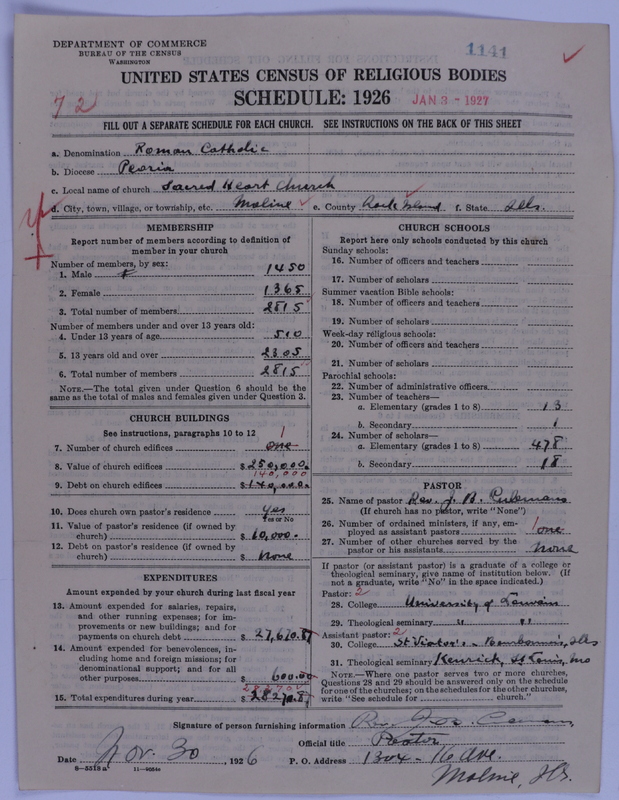 DEPARTMENT OF COMMERCE
BUREAU OF THE CENSUS
WASHINGTON
1141
UNITED STATES CENSUS OF RELIGIOUS BODIES
72
SCHEDULE: 1926 JAN 3 - 1927
FILL OUT A SEPARATE SCHEDULE FOR EACH CHURCH. SEE INSTRUCTIONS ON THE BACK OF THIS SHEET
a. Denomination Roman Catholic
b. Diocese Peoria
c. Local name of church Sacred Heart Church
d. City, town, village, or township, etc. Moline e. County Rock Island f. State Ills.
MEMBERSHIP
Report number of members according to definition of
member in your church
Number of members, by sex:
1. Male 1450
2. Female 1365
3. Total number of members 2815
Number of members under and over 13 years old:
4. Under 13 years of age 510
5. 13 years old and over 2305
6. Total number of members 2815
NOTE.—The total given under Question 6 should be the
same as the total of males and females given under Question 3.
CHURCH BUILDINGS
See instructions, paragraphs 10 to 12
1
7. Number of church edifices one
8. Value of church edifices $ 250,000.
140,000
9. Debt on church edifices $ 140,000.
10. Does church own pastor's residence yes
Yes or No
11. Value of pastor's residence (if owned by
church) $ 10,000.
12. Debt on pastor's residence (if owned by
church) $ None
EXPENDITURES
Amount expended by your church during last fiscal year
13. Amount expended for salaries, repairs,
and other running expenses; for im-
provements or new buildings; and for
payments on church debt $ 27,670.81
14. Amount expended for benevolences, in-
cluding home and foreign missions; for
denominational support; and for all
other purposes $ 600.00
15. Total expenditures during year $ 28270.81
CHURCH SCHOOLS
Report here only schools conducted by this church
Sunday schools:
16. Number of officers and teachers
17. Number of scholars
Summer vacation Bible schools:
18. Number of officers and teachers
19. Number of scholars
Week-day religious schools:
20. Number of officers and teachers
21. Number of scholars
Parochial schools:
22. Number of administrative officers
23. Number of teachers—
a. Elementary (grades 1 to 8) 13
b. Secondary 1
24. Number of scholars—
a. Elementary (grades 1 to 8) 478
b. Secondary 18
PASTOR
25. Name of pastor Rev. J. B. Culemans
(If church has no pastor, write "None")
26. Number of ordained ministers, if any, em-
ployed as assistant pastors 1 one
27. Number of other churches served by the
pastor or his assistants none
If pastor (or assistant pastor) is a graduate of a college or
theological seminary, give name of institution below. (If
not a graduate, write "No" in the space indicated.)
Pastor: 2
28. College University of Louvain
29. Theological seminary " "
Assistant pastor: 2
30. College St Viator's - Bourbonnais, Ills
31. Theological seminary Kenrick, St Louis, Mo
NOTE.—Where one pastor serves two or more churches,
Questions 28 and 29 should be answered only on the schedule
for one of the churches; on the schedules for the other churches,
write "See schedule for
Signature of person furnishing information Rev.
Official title Pastor
Date Nov. 30, 1926 P. O. Address 1304 - 16 Ave.
8-5518a 11-9054a
Moline, Ills.